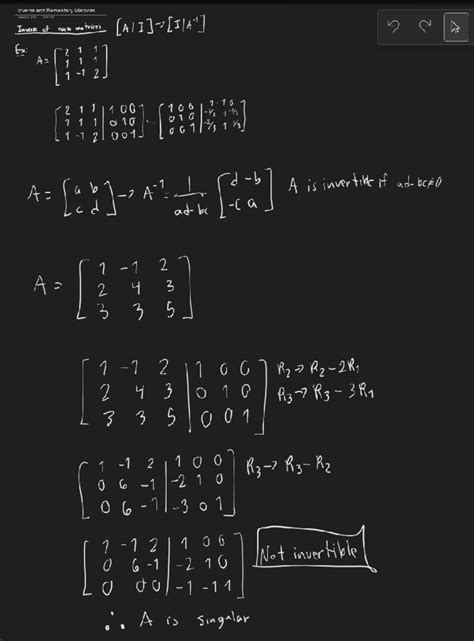 Inverse and Elementary Matrices
Inverse of nxn matrices [A|I]→[I|A⁻¹]
Ex:
A = [2 1 1
1 1 1
1 -1 2]
[2 1 1 | 1 0 0
1 1 1 | 0 1 0
1 -1 2 | 0 0 1] [1 0 0 | 1 -1 0
0 1 0 | -1/3 1 -1/3
0 0 1 | -2/3 1 1/3]
A = [a b
c d] → A⁻¹ = 1/ad-bc [d -b
-c a] A is invertible if ad-bc≠0
A = [1 -1 2
2 4 3
3 3 5]
[1 -1 2 | 1 0 0
2 4 3 | 0 1 0
3 3 5 | 0 0 1] R₂→R₂-2R₁
R₃→R₃-3R₁
[1 -1 2 | 1 0 0
0 6 -1 | -2 1 0
0 6 -1 | -3 0 1] R₃→R₃-R₂
[1 -1 2 | 1 0 0
0 6 -1 | -2 1 0
0 0 0 | -1 -1 1] Not invertible
∴ A is singular